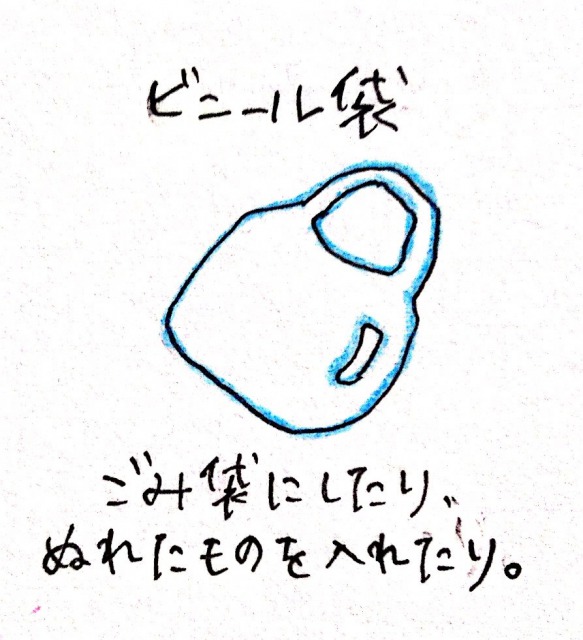 ビニール袋
ごみ袋にしたり、
ぬれたものを入れたり。